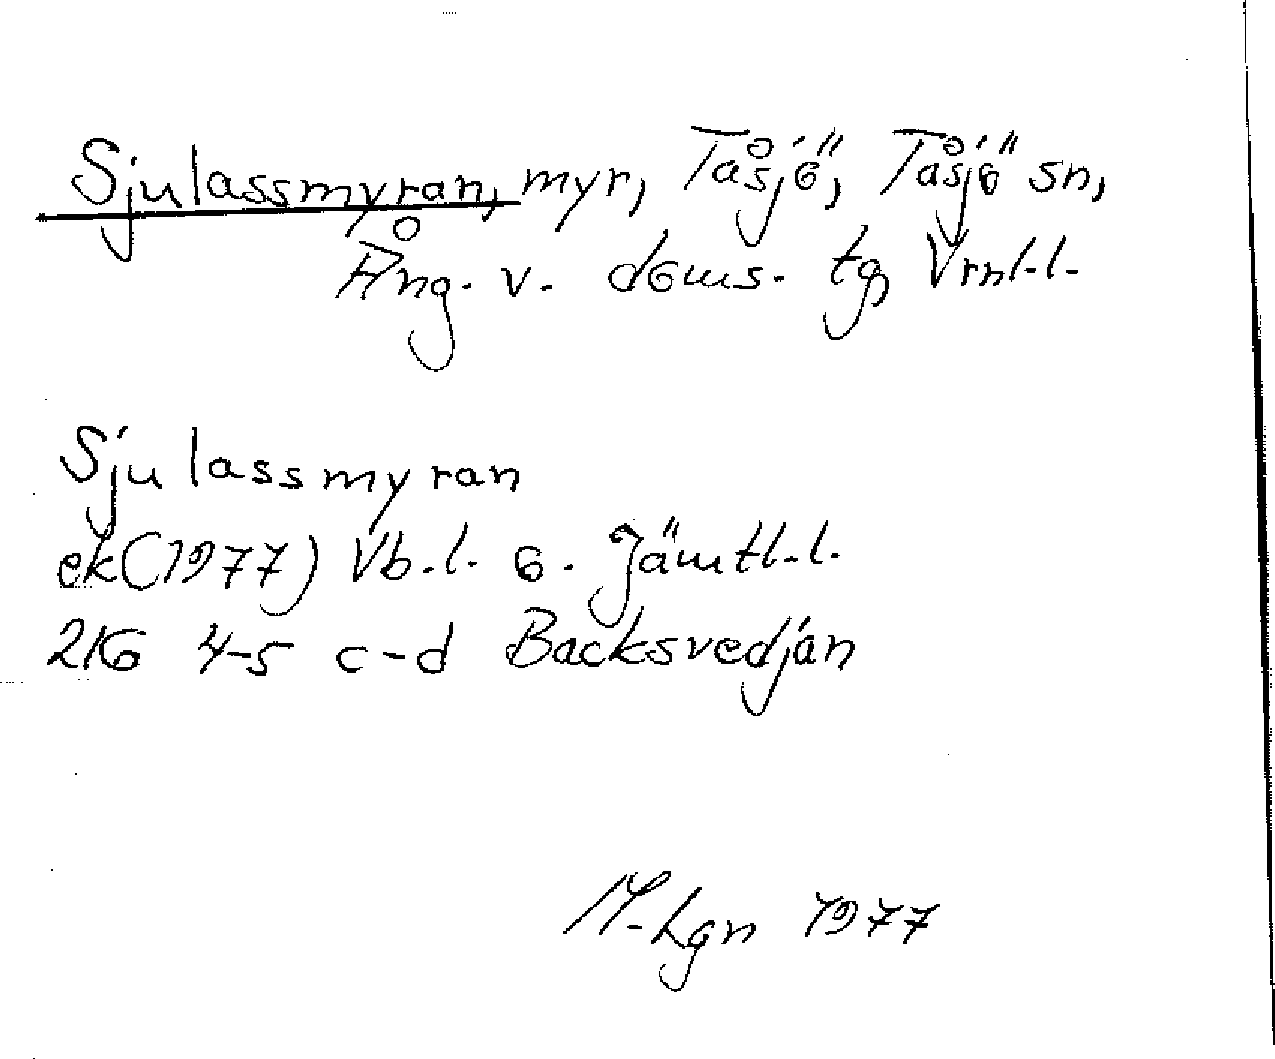 Sjulassmyran, myr, Tåsjö, Tåsjö sn,
Ång. v. doms. tg Vrnl.l.
Sjulassmyran
ek(1977) Vb.l. o. Jämtl.l.
21G 4-5 c-d Backsvedjan
M-Lgn 1977